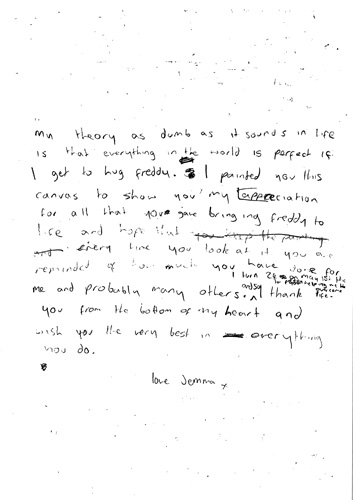 my theory as dumb as it sounds in life
is that everything in the world is perfect if
I get to hug freddy. I painted you this
canvas to show you my appreciation
for all that you gave bringing freddy to
life and hope that you keep the painting
and every time you look at it you are
reminded of how much you have done for
me and probably many others. thank
I turn 24 on may 1st
you from the bottom of my heart and
wish you the very best in everything
you do.
love Jemma x